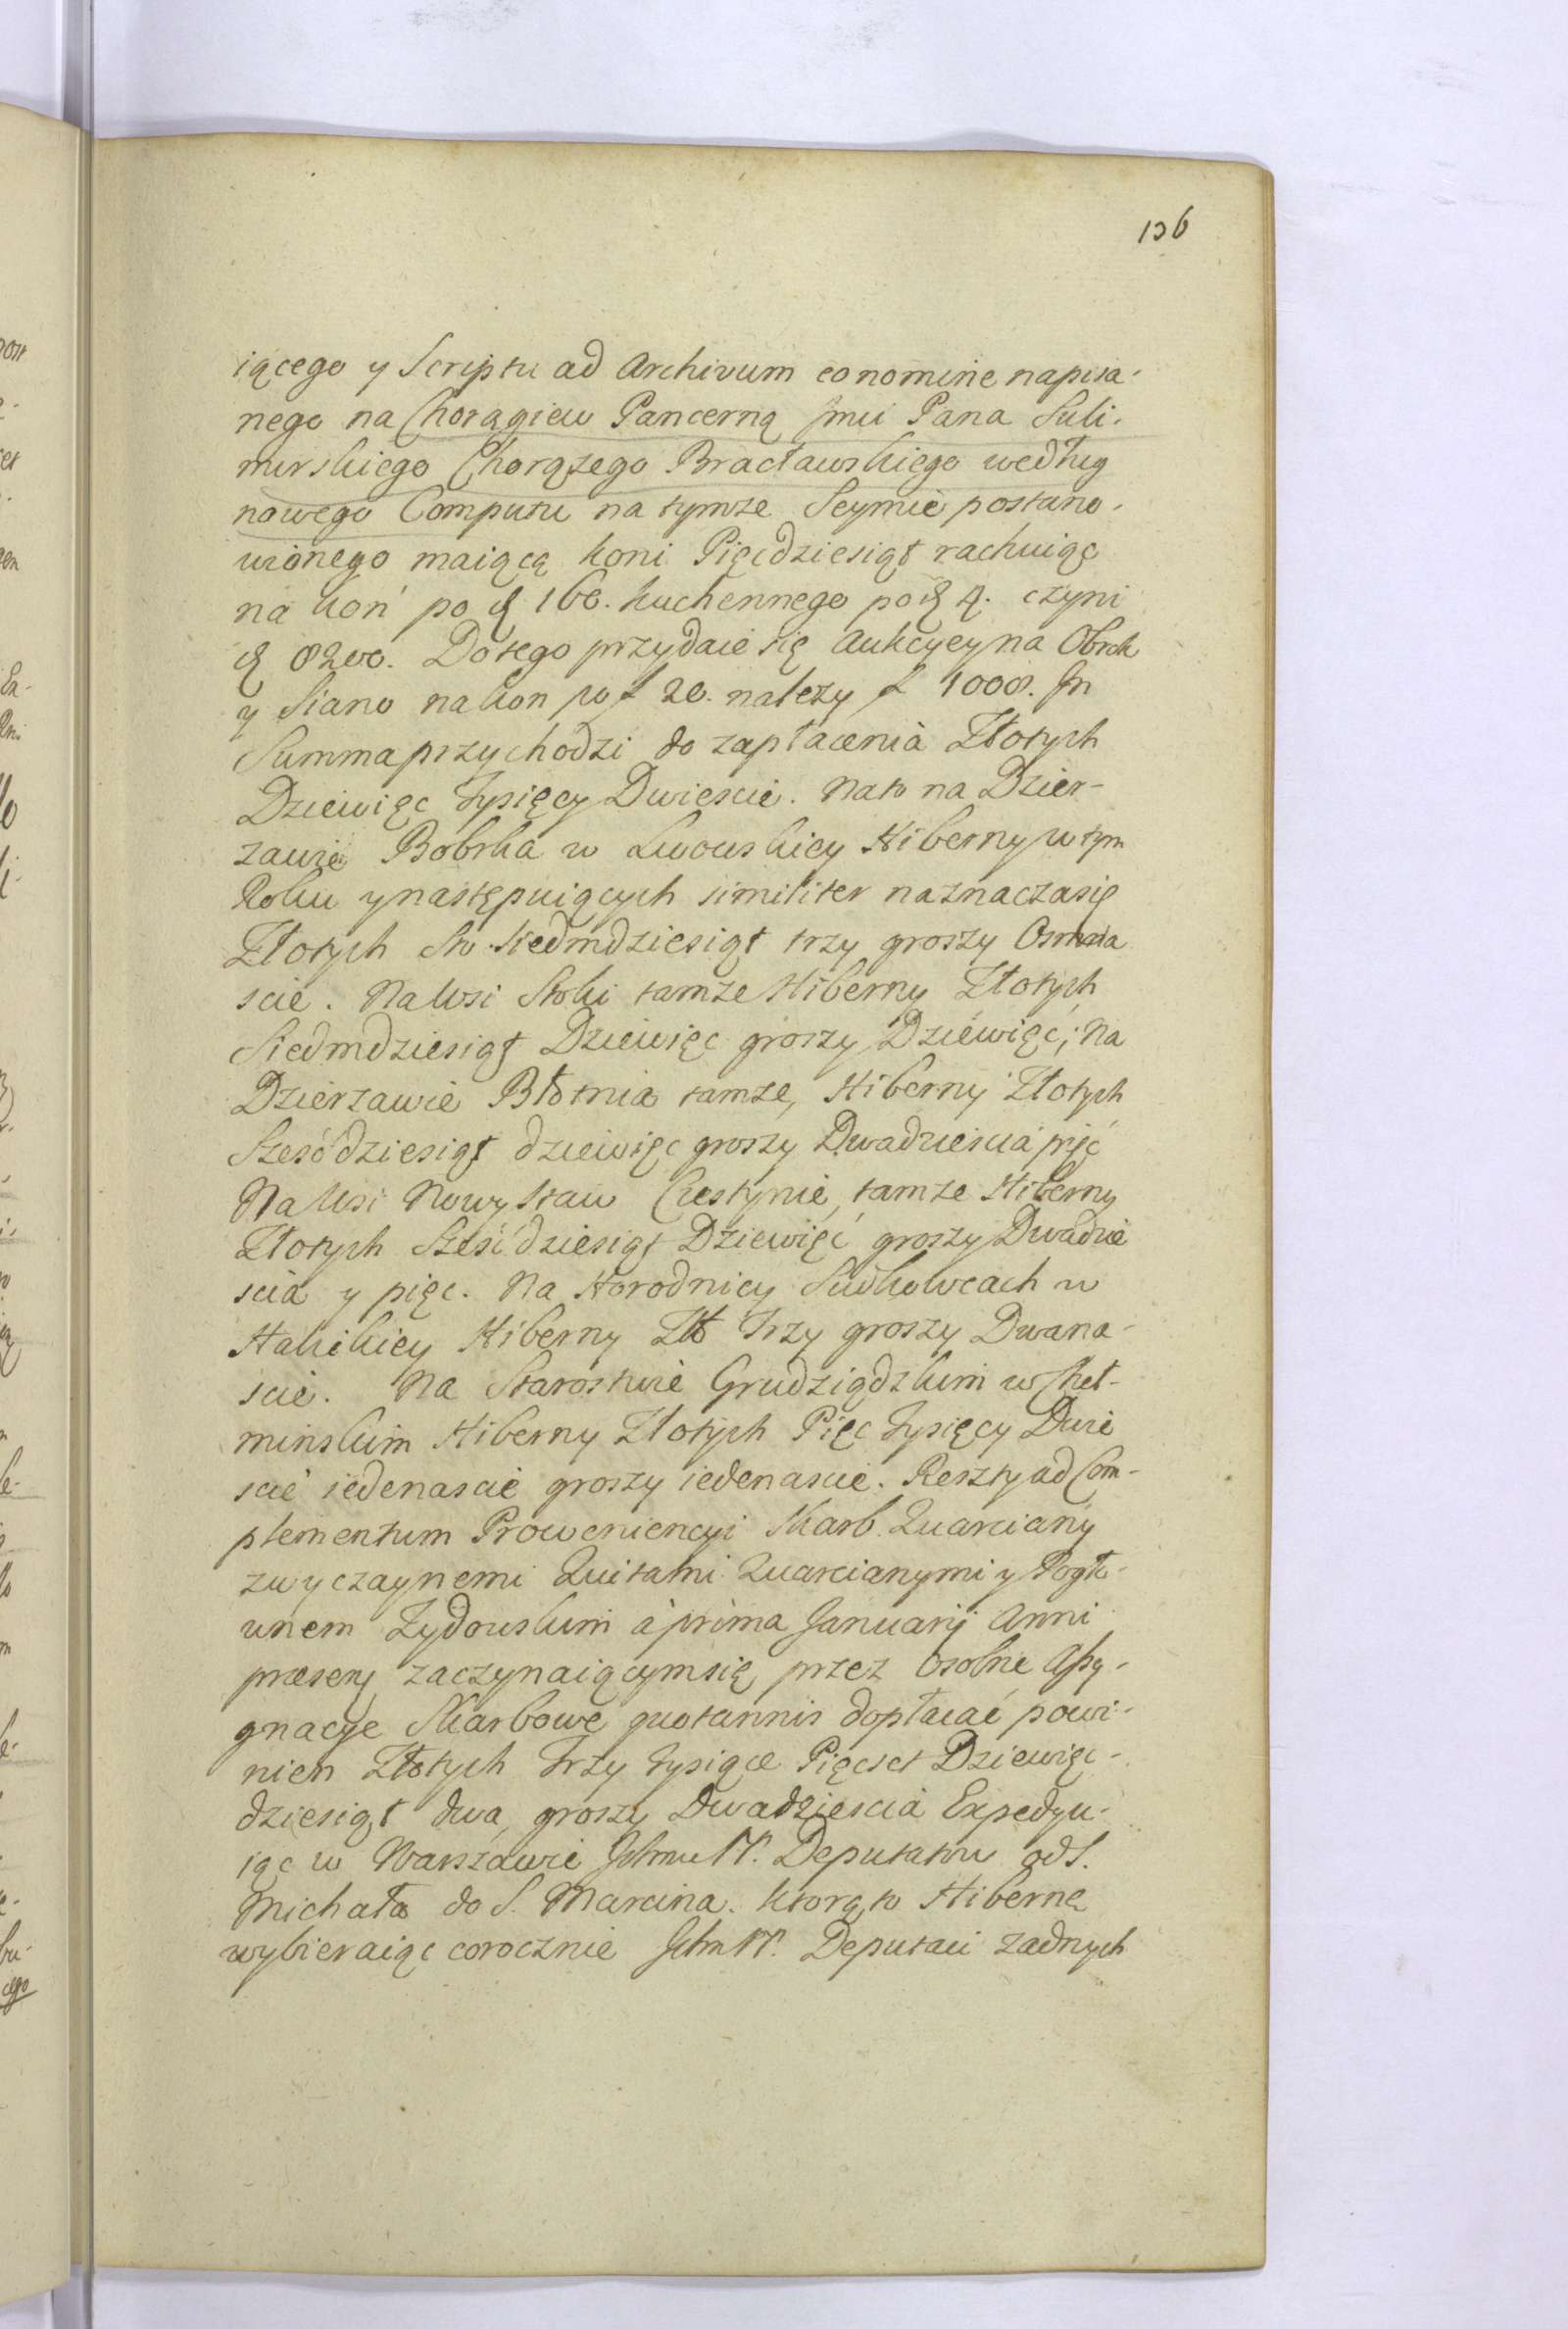 136
iącego y Scriptu ad Archivum eo nomine napisa-
nego na Chorągiew Pancerną Jmci Pana Suli-
mirskiego Chorązego Bracławskiego według
nowego Computu na tymze Seymie postano-
wionego maiącą koni Pięcdziesiąt rachuiąc
na koń po zł 160. kuchennego po zł 4. czyni
zł 8200. Do tego przydaie się Aukcyey na Obrok
y Siano na kon po f 20. nalezy f 1000. In
Summa przychodzi do zapłacenia Złotych
Dziewięc Tysięcy Dwiescie. Na to na Dzier-
zawie Bobrka w Lwowskiey Hiberny w tym
Roku y następuiących similiter naznacza się
Złotych Sto Siedmdziesiąt trzy groszy Osmna
scie. Na Wsi Stoki tamze Hiberny Złotych
Siedmdziesiąt Dziewięc groszy Dziéwięć; Na
Dzierzawie Błotnia tamze, Hiberny Złotych
Sześćdziesiąt dziewięc groszy Dwadziescia pięć
Na Wsi Nowy Staw Czestynie, tamze Hiberny
Złotych Sześćdziesiąt Dziewięć groszy Dwadzie
scia y pięc. Na Horodnicy Sudkowcach w
Halickiey Hiberny Zło Trzy groszy Dwana-
scie. Na Starostwie Grudziądzkim w Cheł-
minskim Hiberny Zlotych Pięc Tysięcy Dwie
scie iedenascie groszy iedenascie. Reszty ad Com-
plementum Proweniencyi Skarb Quarciany
zwyczaynemi Quitami Quarcianymi y Pogło-
wnem Zydowskim à prima Januarij Anni
præsentis zaczynaiącym się, przez Osobne Assy-
gnacye Skarbowe quotannis dopłacać powi-
nien Złotych Trzy Tysiące Pięcset Dziewięc-
dziesiąt dwa, groszy Dwadziescia Expedyu-
iąc w Warszawie Ichmc PP. Deputatow od S.
Michała do S. Marcina. Ktorą to Hibernę
wybieraiąc corocznie Ichm PP. Deputaci zadnych